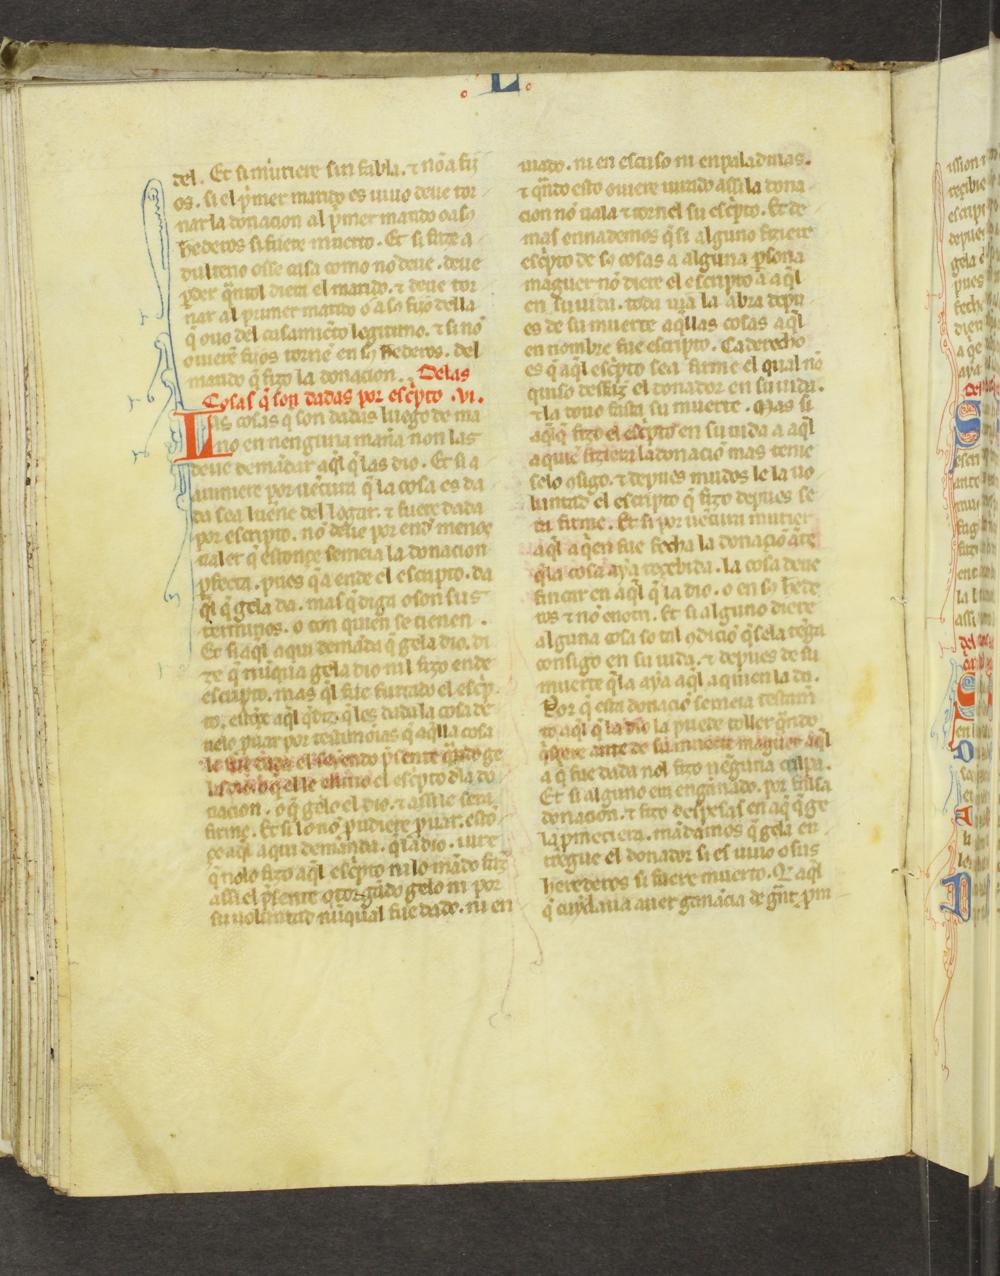 L
del. Et si muriere sin fabla. ⁊ nõ a fij
os. si el p̃mer marido es uiuo deue tor
nar la donacion al p̃mer marido o a sꝯ
herederos si fuere muerto. Et si fizo a
dulterio o sse casa como nõ deue. deue
ꝑder q̃ntol diera el marido. ⁊ deue tor
nar al primer marido o a sꝯ fijos della
q̃ ouo del casamiẽto legitimo. ⁊ si nõ
ouierẽ fijos tornẽ en sꝯ herederos. del
marido q̃ fizo la donacion. Delas
Cosas q̃ son dadas por esc̃pto .vi.
Las cosas q̃ son dadas luego de ma
no en nenguna maña non las
deue demãdar aq̃l q̃ las dio. Et si a
uiniere por uẽtura q̃ la cosa es da
da sea luene del logar. ⁊ fuere dada
por escripto. nõ deue por end menos
ualer q̃ estonçe semeia la donacion
ꝑfecta. pues q̃ a ende el escripto. da
q̃l q̃ gela da. mas q̃ diga o son sus
terminos. o con quien se tienen.
Et si aq̃l a qui demãda q̃ gela dio. di
ze q̃ nũqua gela dio ni l fizo ende
escripto. mas q̃l fue furtado el esc̃p
to. estõçe aq̃l q̃ diz. q̃ les dada la cosa de
uelo ꝓuar por testimonias q̃ aq̃lla cosa
le fue dada el seyendo p̃sente q̃ndo ge
la dio o q̃ el le enuio el esc̃pto dla do
nacion. o q̃ gelo el dio. ⁊ assi le sera
firme. Et si lo nõ pudiere ꝓuar. esto
çe aq̃l a qui demãda. q̃ la dio. iure
q̃ nolo fizo aq̃l esc̃pto ni lo mãdo faz̃
assi el p̃sente otorgãdo gelo ni por
su uoluntad nũqual fue dado. ni en
uiado. ni en escuso ni en paladinas.
⁊ q̃ndo esto ouiere iurado assi la dona
cion nõ uala ⁊ tornel su esc̃pto. Et de
mas ennademos q̃ si alguno fiziere
esc̃pto de sꝯ cosas a alguna ꝑsona
maguer nõ diere el escripto a aq̃l
en su uida. toda uia la abra depu
es de su muerte aq̃llas cosas aq̃l
en nombre fue escripto. Ca derecho
es q̃ aq̃l esc̃pto sea firme el qual nõ
quiso desfaz̃ el donador en su uida.
⁊ la touo fasta su muerte. Mas si
aq̃l q̃ fizo el esc̃pto en su uida a aq̃l
a quiẽ fiziera la donaciõ mas tene
selo cõsigo. ⁊ depues mudos le la uo
luntad el escripto q̃ fizo depues se
ra firme. Et si por uẽtura muriere
aq̃l a q̃en fue fecha la donaciõ ãte
q̃ la cosa aya recebida. la cosa deue
fincar en aq̃l q̃ la dio. o en sꝯ hede
ros ⁊ nõ en otri. Et si alguno diere
alguna cosa so tal cõdiciõ q̃ sela tẽga
consigo en su uida. ⁊ depues de su
muerte q̃ la aya aq̃l a quien la da.
Por q̃ esta donaciõ semeia testam̃
to aq̃l q̃ la dio la puede toller q̃ndo
q̃siere ante de su muerte maguer aq̃l
a q̃ fue dada nol fizo nẽguna culpa.
Et si alguno era engãnado. por falsa
donacion. ⁊ fizo despesas en aq̃ q̃ ge
la p̃metiera. mãdamos q̃ gela en
tregue el donador si es uiuo o sus
herederos si fuere muerto. Q̃ aq̃l
q̃ cuydaua auer ganãcia de gñt ꝓm